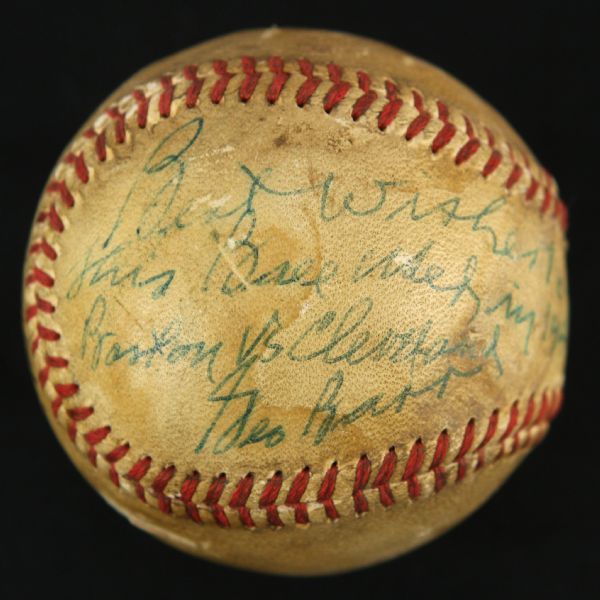 Best Wishes
this Ball Used in
Boston Vs Cleveland
Geo Barr